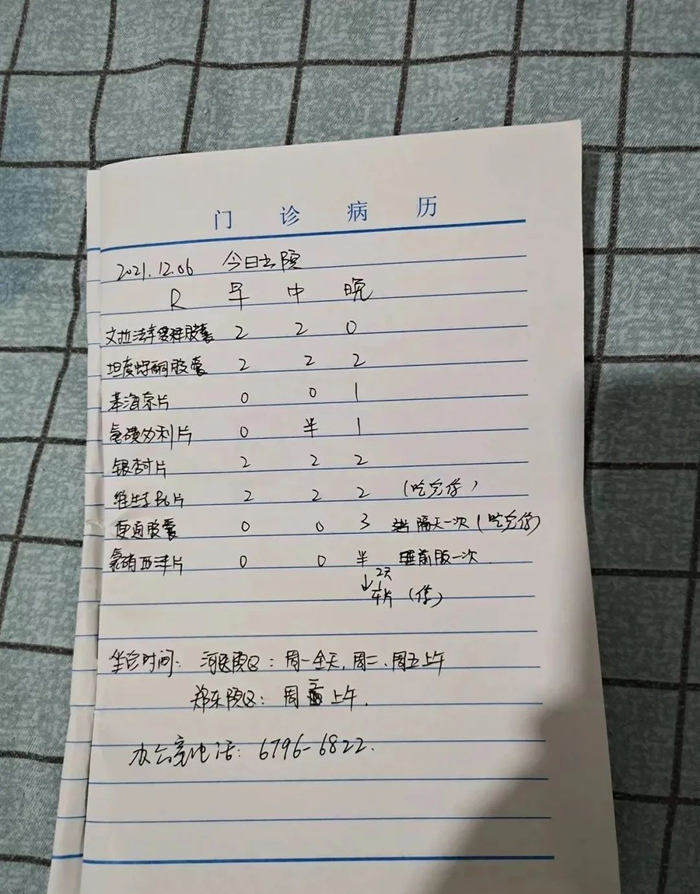 门诊病历
2021.12.06 今日出院
R 早 中 晚
文拉法辛缓释胶囊 2 2 0
坦度螺酮胶囊 2 2 2
苯海索片 0 0 1
氨磺必利片 0 半 1
银杏片 2 2 2
维生素B片 2 2 2 (吃完停)
便通胶囊 0 0 3 隔天一次 (吃完停)
氯硝西泮片 0 0 半 睡前服一次
↓2天
片 (停)
坐诊时间: 河医院区: 周一全天, 周二、周五上午
郑东院区: 周 上午.
办公室电话: 6796-6822.